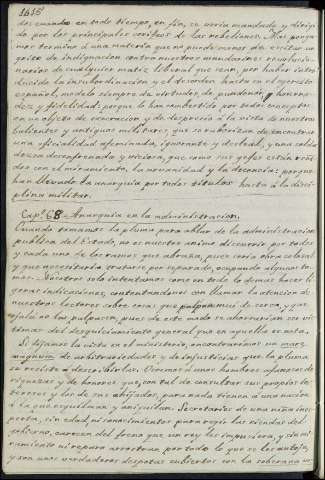 1615
dos cuando en todo tiempo, en fin, se veria mandado y dirigi-
do por los principales corifeos de las rebeliones. Mas ponga-
mos termino á una materia que no puede menos de excitar un
grito de indignacion contra nuestros mandarines revolucio-
narios de cualquier matiz liberal que sean, por haber intro-
ducido la insubordinacion y el desorden hasta en el ejercito
español, modelo siempre de virtudes, de pundonor, honra-
dez y fidelidad: porque lo han convertido por todos conceptos
en un objeto de execracion y de desprecio á la vista de nuestros
valientes y antiguos militares, que se ruborizan de encontrar
una oficialidad afeminada, ignorante y desleal, y una solda-
desca desenfrenada y viciosa, que como sus gefes están reñi-
dos con el miramiento, la urbanidad y la decencia: porque
han llevado la anarquia por todos titulos hasta á la disci-
plina militar.
Capº 68. Anarquia en la administracion.
Cuando tomamos la pluma para ablar de la administracion
publica del Estado, no es nuestro animo discurrir por todos
y cada uno de los ramos que abraza, pues seria obra colosal
y que necesitaria tratarse por separado, ocupando algunos to-
mos. Nosotros solo intentamos como en todo lo demas hacer li-
geras indicaciones, contentandonos con llamar la atencion de
nuestros lectores sobre cosas que palpan muy de cerca, y que
ojalá no las palpasen, pues de este modo se ahorrarian ser vic-
timas del desquiciamiento general que en aquella se nota.
Si fijamos la vista en el ministerio, encontraremos un mare
magnum de arbitrariedades y de injusticias que la pluma
se resiste á describirlas. Veremos á unos hombres afanosos de
riquezas y de honores que, con tal de consultar sus propios in-
tereses y los de sus ahijados, para nada tienen á una nacion
á la que esquilman y aniquilan. Secretarios de una niña inex-
perta, sin edad ni conocimientos para regir las riendas del
gobierno, carecen del freno que un rey les impusiera, y sin mi-
ramiento ni reparo arrostran por todo lo que se les antoja,
y son unos verdaderos despotas cubiertos con la soberana au-